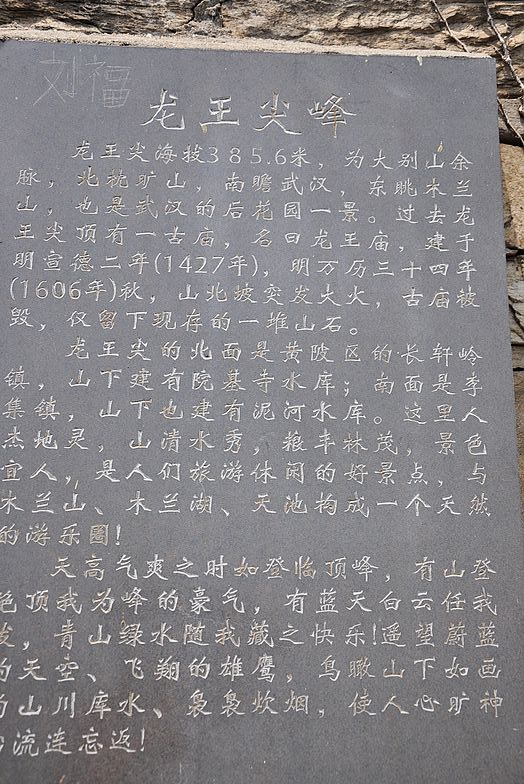 刘福
龙王尖峰
龙王尖海拔385.6米，为大别山余
脉，北枕旷山，南瞻武汉，东眺木兰
山，也是武汉的后花园一景。过去龙
王尖顶有一古庙，名曰龙王庙，建于
明宣德二年(1427年)，明万历三十四年
(1606年)秋，山北坡突发大火，古庙被
毁，仅留下现存的一堆山石。
龙王尖的北面是黄陂区的长轩岭
镇，山下建有院基寺水库；南面是李
集镇，山下也建有泥河水库。这里人
杰地灵，山清水秀，粮丰林茂，景色
宜人，是人们旅游休闲的好景点，与
木兰山、木兰湖、天池构成一个天然
的游乐圈！
天高气爽之时如登临顶峰，有山登
绝顶我为峰的豪气，有蓝天白云任我
发，青山绿水随我藏之快乐！遥望蔚蓝
的天空、飞翔的雄鹰，鸟瞰山下如画
的山川库水、袅袅炊烟，使人心旷神
流连忘返！